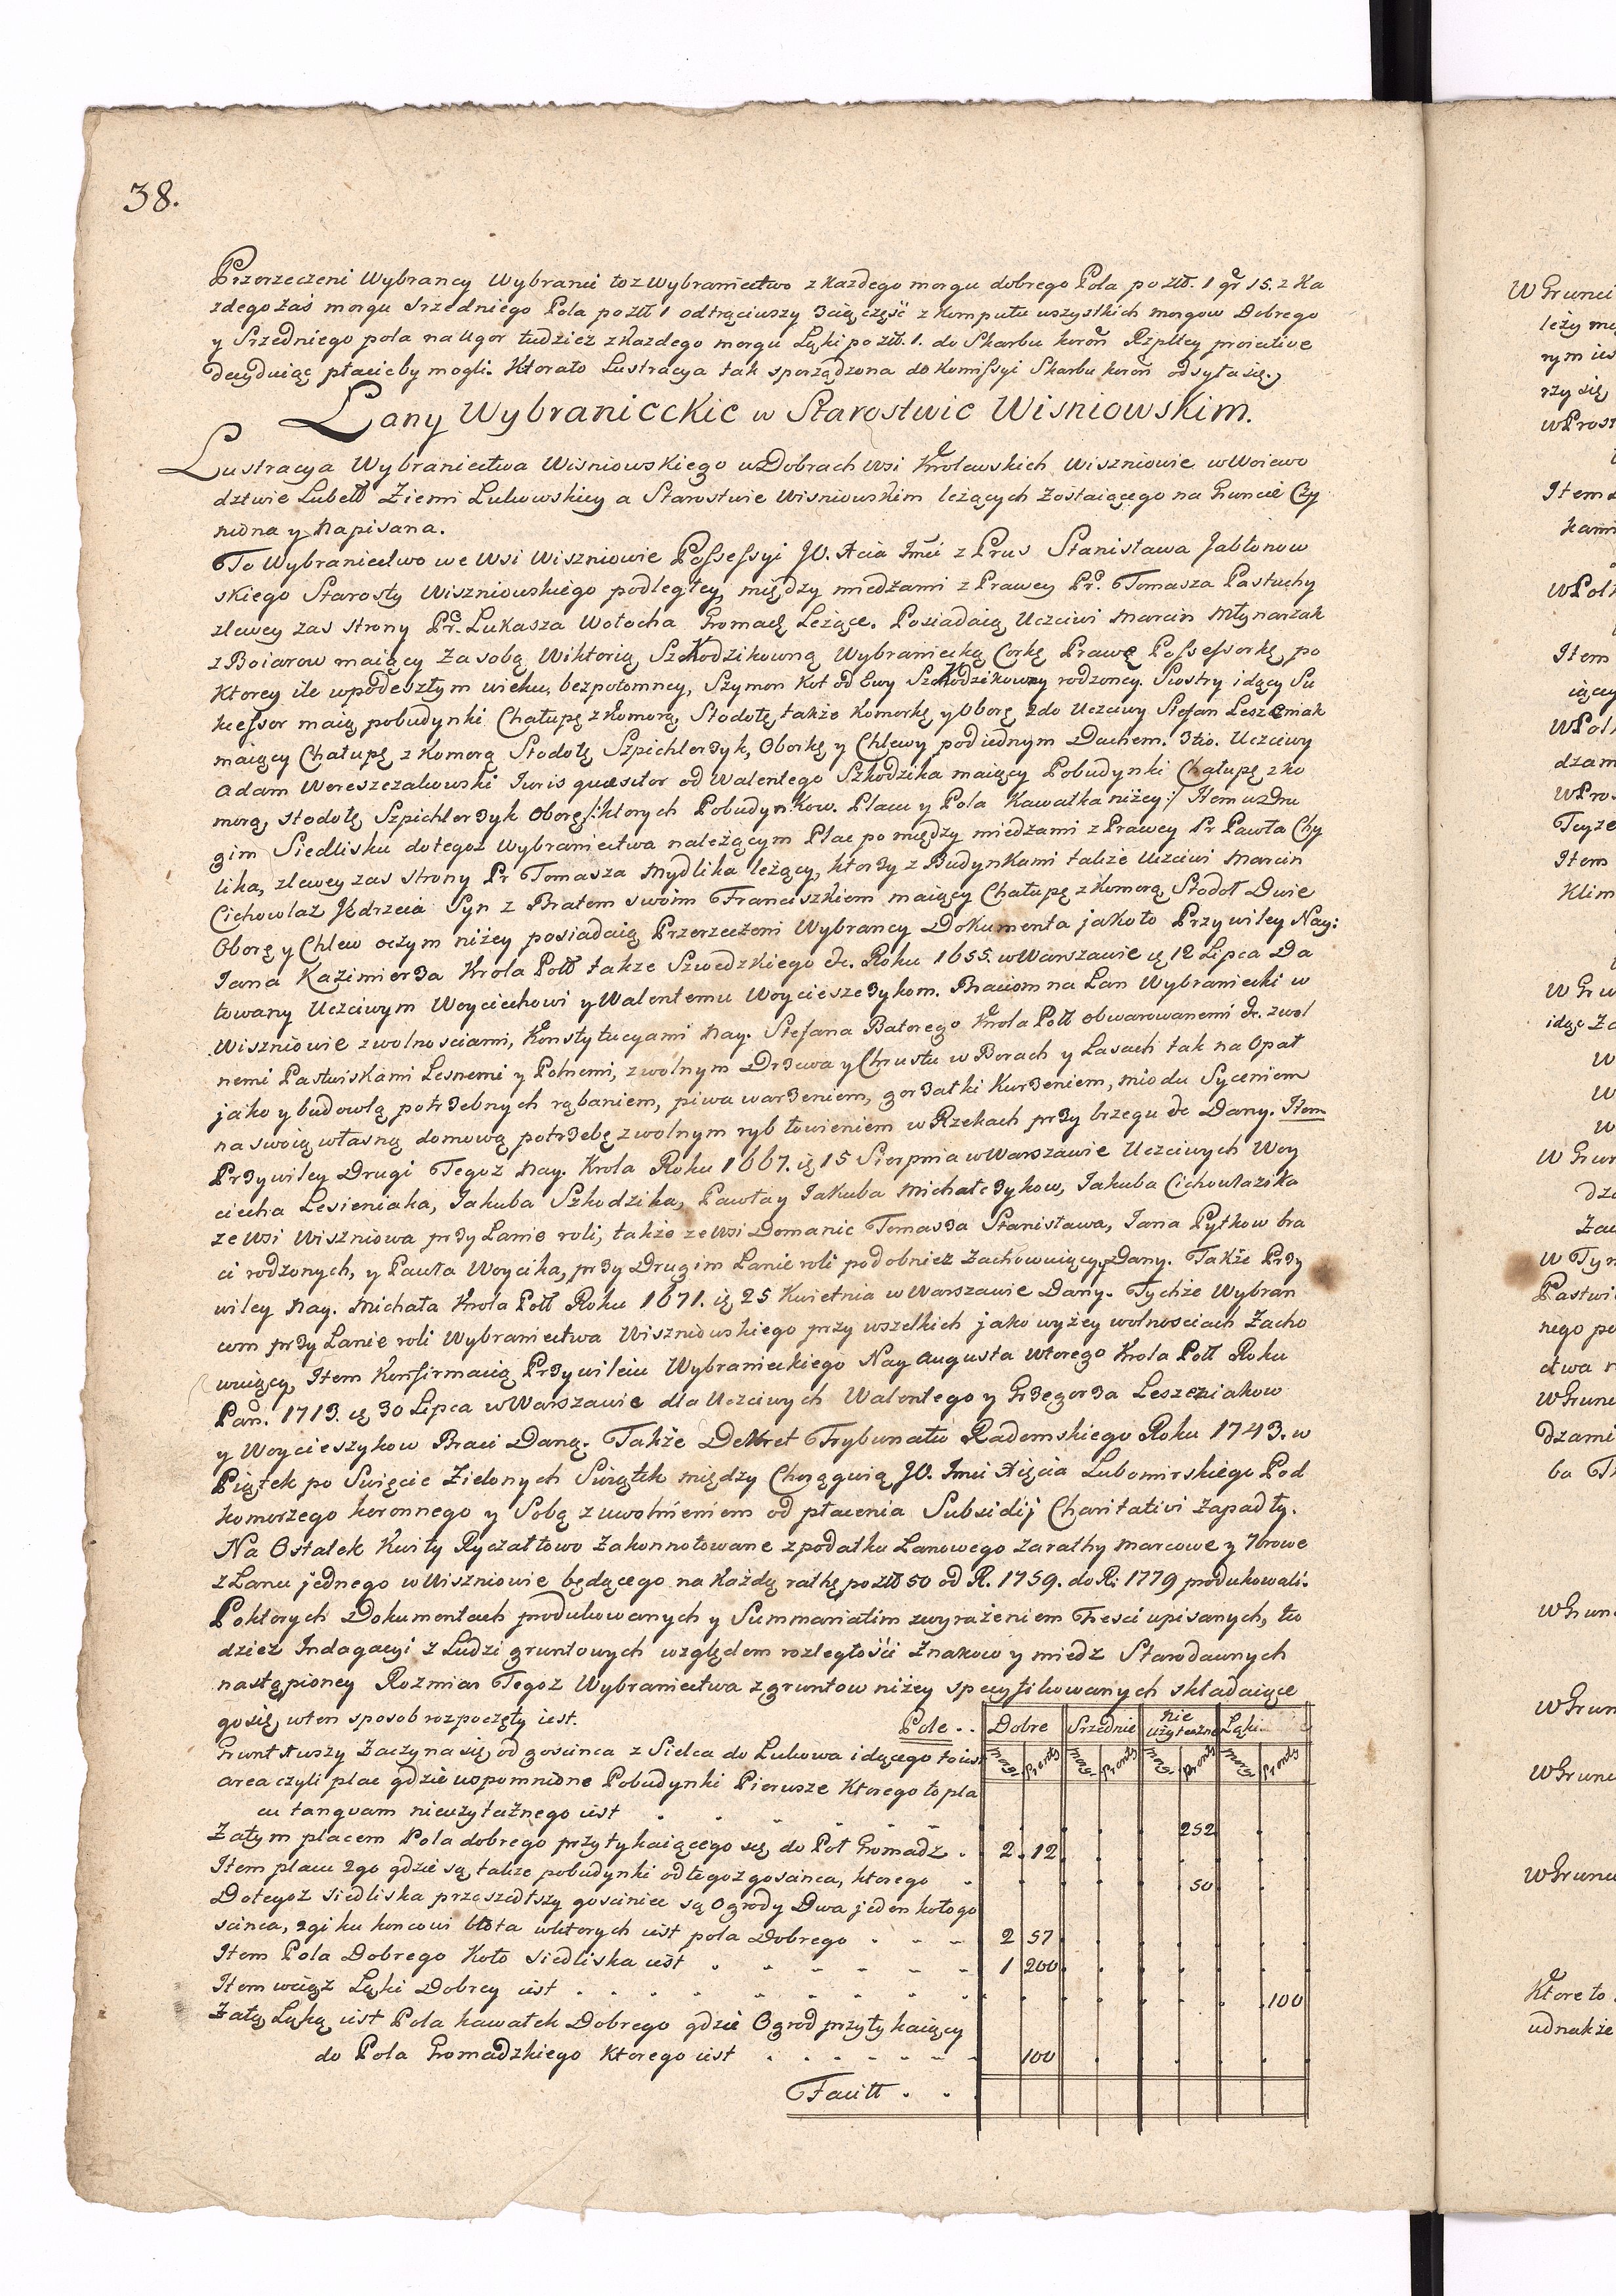 38.
Przerzeczeni Wybrancy Wybranie toz Wybraniectwo z Kazdego morgu dobrego Pola po złł. 1 gr 15. z Ka
zdego zaś morgu Srzedniego Pola po złł 1 odtrąciwszy 3cią część z Komputu wszystkich morgow Dobrego
y Srzedniego pola na Ugor tudzież z Kazdego morgu Łąki po złł. 1. do Skarbu koroñ Rzpltey
decyduiąc płacićby mogli. Ktorato Lustracya tak sporządzona do Komissyi Skarbu koroñ odsyła się.
Łany Wybranieckie w Starostwie Wisniowskim.
Lustracya Wybraniectwa Wisniowskiego w Dobrach Wsi Krolewskich Wiszniowie w Woiewo
dztwie Lubell Ziemi Lukowskiey a Starostwie Wisniowskim leżących Zostaiącego na Gruncie Czy
niona y Napisana.
To Wybraniectwo we Wsi Wiszniowie Possessyi JO. Xcia Jmci z Prus Stanisława Jabłonow
skiego Starosty Wiszniowskiego podległey, między miedzami z Prawey Pr. Tomasza Pastuchy
zlewey zas strony Pr. Lukasza Wołocha Gromadą Leżące. Posiadaią Uczciwi Marcin Młynarzak
z Boiarow maiący Za sobą Wiktorią Szkodzikowną Wybraniecką Corkę Prawę Possessorkę, po
Ktorey ile w podeszłym wieku, bezpotomney, Szymon Kot od Ewy Szkodzikowny rodzoney Siostry idący Su
kcessor maią pobudynki Chałupę z Komorą, Stodołę, także Komorkę y Oborę 2do Uczciwy Stefan Leszczniak
maiący Chałupę z Komorą Stodołę Szpichlerzyk, Oborkę y Chlewy pod iednym Dachem. 3tio. Uczciwy
Adam Wereszczakowski Iuris quæsitor od Walentego Szkodzika maiący Pobudynki Chałupę z ko
morą, stodołę Szpichlerzyk Oborę /: ktorych Pobudynkow. Placu y Pola Kawałka niżey :/ Item w dru
gim Siedlisku do tegoz Wybraniectwa należącym Plac po między miedzami z Prawey Pr Pawła Chy
lika, zlewey zas strony Pr Tomasza Mydlika leżący, ktorzy z Budynkami takze Uczciwi Marcin
Cichowlaz Jędrzeia Syn z Bratem swoim Franciszkiem maiący Chałupę z Komorą Stodoł Dwie
Oborę y Chlew oczym niżey posiadaią Przerzeczeni Wybrancy Dokumenta jako to Przywiley Nay:
Jana Kazimierza Krola Poll takze Szwedzkiego &c. Roku 1655. w Warszawie 12 Lipca Da
towany Uczciwym Woyciechowi y Walentemu Woycieszezykom. Braciom na Łan Wybraniecki w
Wiszniowie z wolnosciami, Konstytucyami Nay. Stefana Batorego Krola Poll obwarowanemi &c. z wol
nemi Pastwiskami Lesnemi y Polnemi, z wolnym Drzewa y Chrustu w Borach y Lasach tak na Opał
jako y budowlą potrzebnych rąbaniem, piwa warzeniem, gorzałki Kurzeniem, miodu Syceniem
na swoią własną domową potrzebę z wolnym ryb łowieniem w Rzekach przy brzegu &c Dany. Item
Przywiley Drugi Tegoz Nay. Krola Roku 1667. 15 Sierpnia w Warszawie Uczciwych Woy
ciecha Lesieniaka, Jakuba Szkodzika, Pawła y Jakuba Michalczykow, Jakuba Cichowlazika
ze wsi Wiszniowa przy Łanie roli, także ze wsi Domanic Tomasza Stanisława, Jana Pytkow bra
ci rodzonych, y Pawła Woycika, przy Drugim Łanie roli podobniez zachowuiący Dany. Także Przy
wiley Nay. Michała Krola Poll Roku 1671. 25 Kwietnia w Warszawie Dany. Tychże Wybran
com przy Łanie roli Wybraniectwa Wiszniowskiego przy wszelkich jako wyżey wolnosciach Zacho
wuiący, Item Konfirmacią Przywileiu Wybranieckiego Nay Augusta wtorego Krola Poll Roku
Pañ. 1713. 30 Lipca w Warszawie dla Uczciwych Walentego y Grzegorza Leszczniakow
y Woycieszykow Braci Daną. Także Dekret Trybunału Radomskiego Roku 1743. w
Piątek po Swięcie Zielonych Swiątek między Chorągwią JO. Jmci Xięcia Lubomirskiego Pod
komorzego koronnego y Sobą z uwolnieniem od płacenia Subsidij Charitativi Zapadły.
Na Ostatek Kwity Ryczałtowo Zakonnotowane z podatku Łanowego za rathy marcowe y 7browe
z Łanu jednego w Wiszniowie będącego na Każdą rathę po złł 50 od R. 1759. do R: 1779 produkowali.
Po ktorych Dokumentach produkowanych y Summariatim z wyrażeniem Tresci wpisanych, tu
dzież Indagacyi z Ludzi gruntowych względem rozległości Znakow y miedz Starodawnych
nastąpioney Rozmiar Tegoz Wybraniectwa z gruntow niżey specyfikowanych składaiące
go się, w ten sposob rozpoczęty iest.
Pole . . Dobre Srzednie nie użyteczne Łąki
Morg Pręty Morg Pręty Morg Pręty Morg Pręty
Grunt Zaczyna się od goscinca z Sielca do Lukowa idącego to iest
area czyli plac gdzie wspomnione Pobudynki Pierwsze Ktorego to pla
cu tanquam nieużytecznego iest 252
Zatym placem Pola dobrego przytykaiącego się do Pol Gromadz. 2. 12
Item placu 2go gdzie są takze pobudynki od tegoz goscinca, ktorego 50
Do tegoz siedliska przeszedłszy goscinice są Ogrody Dwa jeden koło go
scinca, 2gi ku koncowi błota w ktorych iest pola Dobrego . 2 57
Item Pola Dobrego Koło siedliska iest 1 200
Item wciąż Łąki Dobrey iest 100
Zatą Łąką iest Pola kawałek Dobrego gdzie Ogrod przytykaiący
do Pola Gromadzkiego Ktorego iest 100
Facitt . .
W Grunci
leży
rym
rzy się
w Prost
Item
w Pol
Item
iący
w Pol
dzam
w Pro
Teyze
Item
Klim
W Gru
idąc
W
W
W
W Grun
dz
W Tym
Pastwi
nego
ctwa
W Grun
dzami
ba
W Grun
W Grun
W Grun
W Grun
Ktore to
iednakże